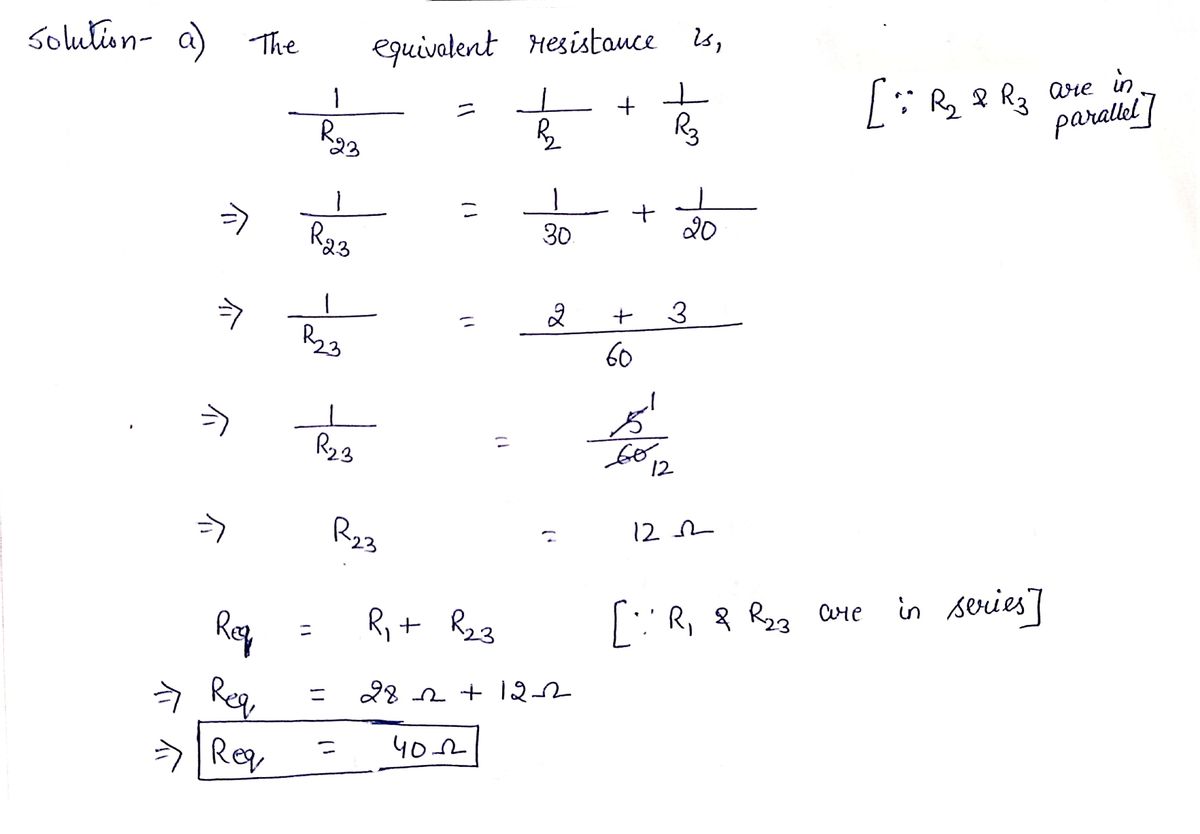 Solution- a) The equivalent resistance is,
1/R₂₃ = 1/R₂ + 1/R₃ [∵ R₂ & R₃ are in parallel]
⇒ 1/R₂₃ = 1/30 + 1/20
⇒ 1/R₂₃ = (2 + 3)/60
⇒ 1/R₂₃ = 5̸ 1/6̸0̸ 12
⇒ R₂₃ = 12 Ω
Req = R₁ + R₂₃ [∵ R₁ & R₂₃ are in series]
⇒ Req = 28 Ω + 12 Ω
⇒ Req = 40 Ω